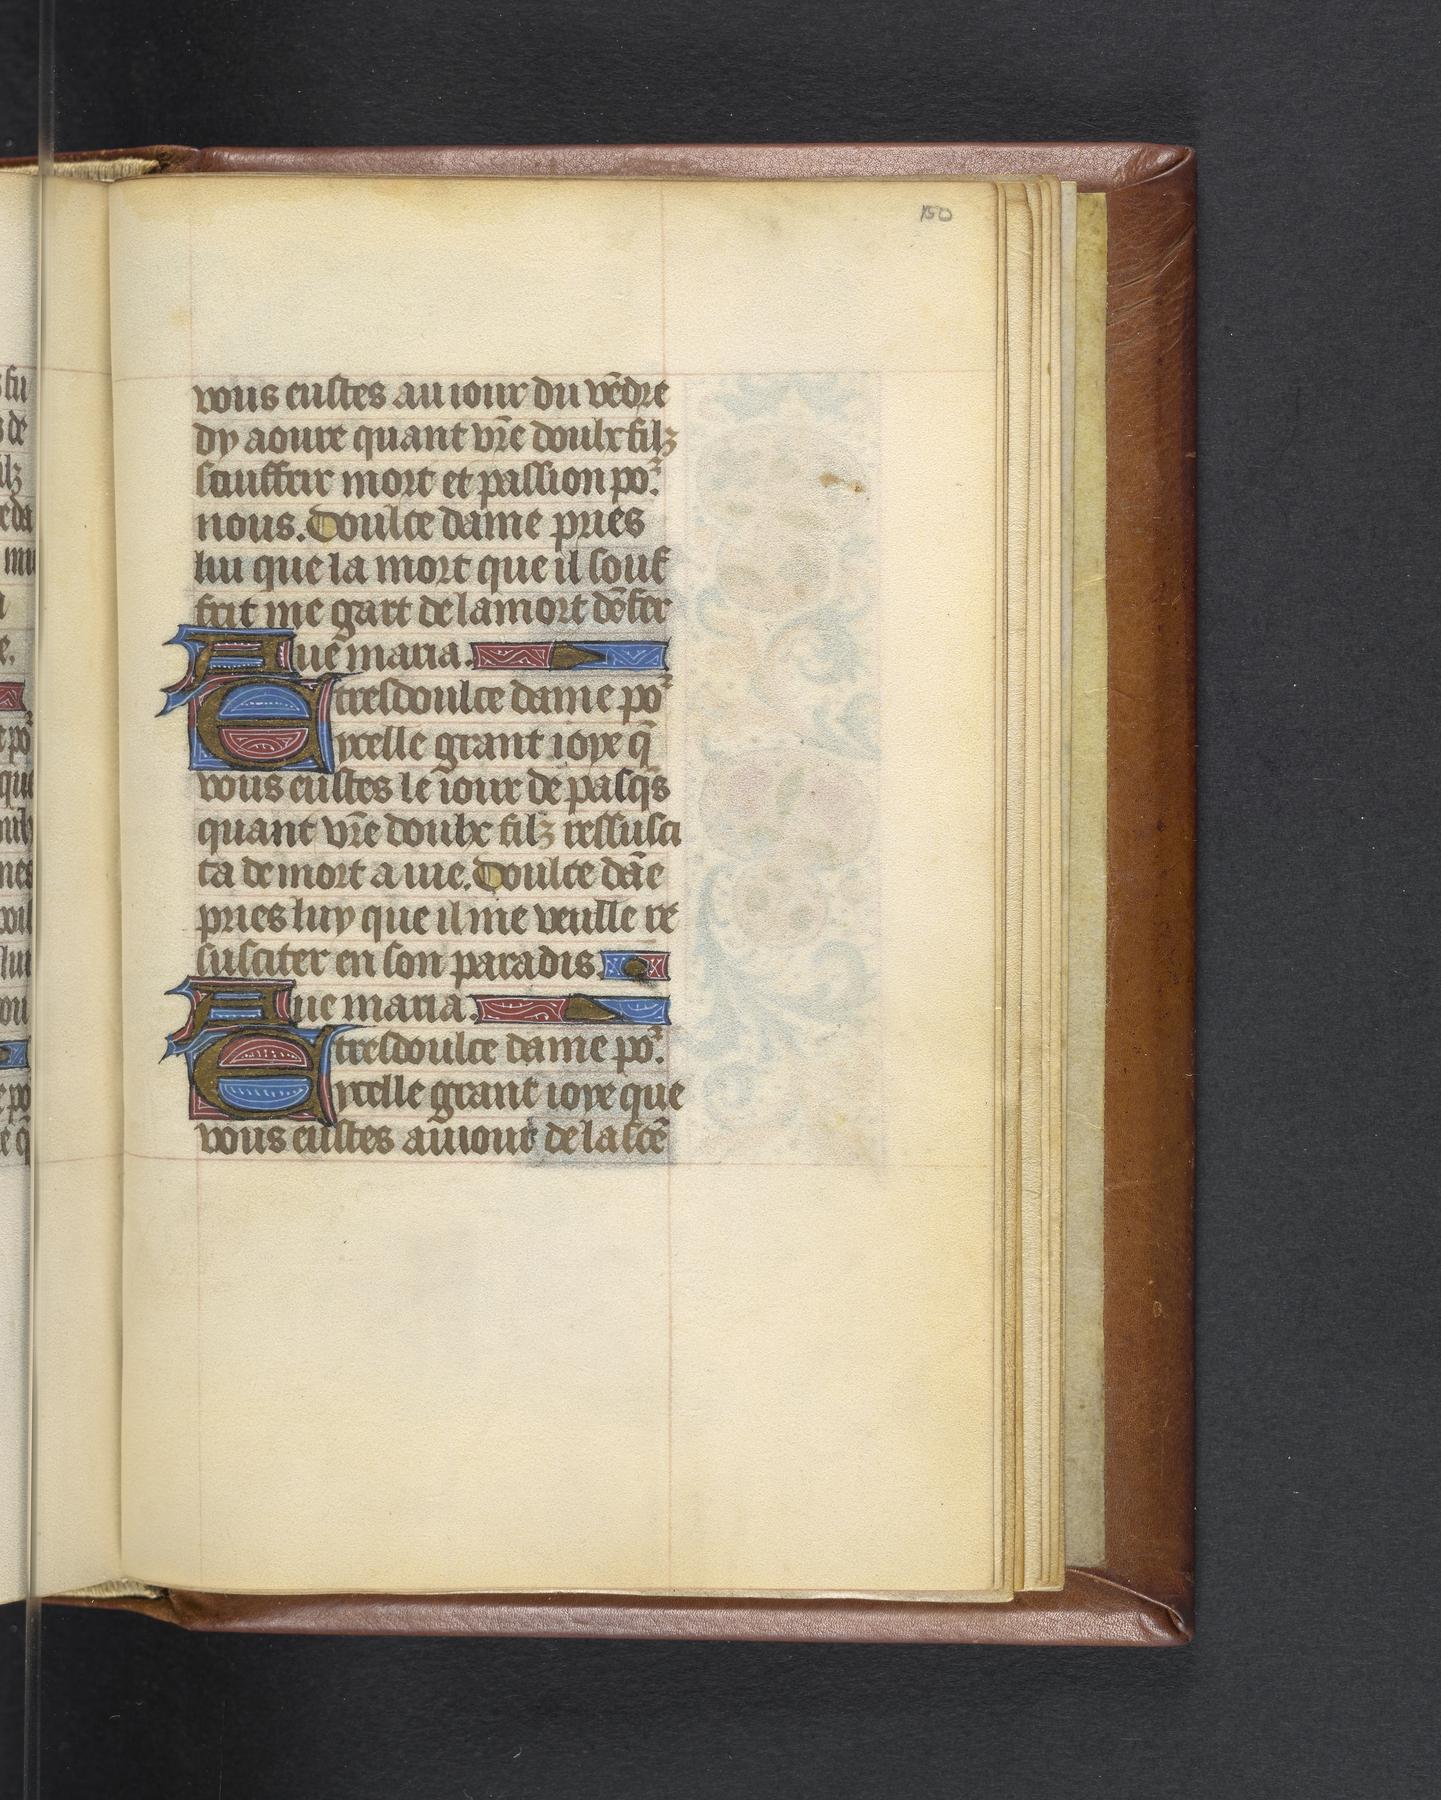 150
vous eustes au iour du vēdre
dy aoure quant vr̄e doulx filz
souffrir mort et passion po᷑.
nous. Doulce dame pries
lui que la mort que il souf
frit me gart de la mort dēfer
Aue maria.
E tresdoulce dame po᷑
ycelle grant ioye q̄
vous eustes le iour de pasq̄s
quant vr̄e doulx filz ressusci
ta de mort a uie. Doulce dāe
pries luy que il me veulle re
susciter en son paradis.
Aue maria.
E tresdoulce dame po᷑.
ycelle grant ioye que
vous eustes au iour de lascē